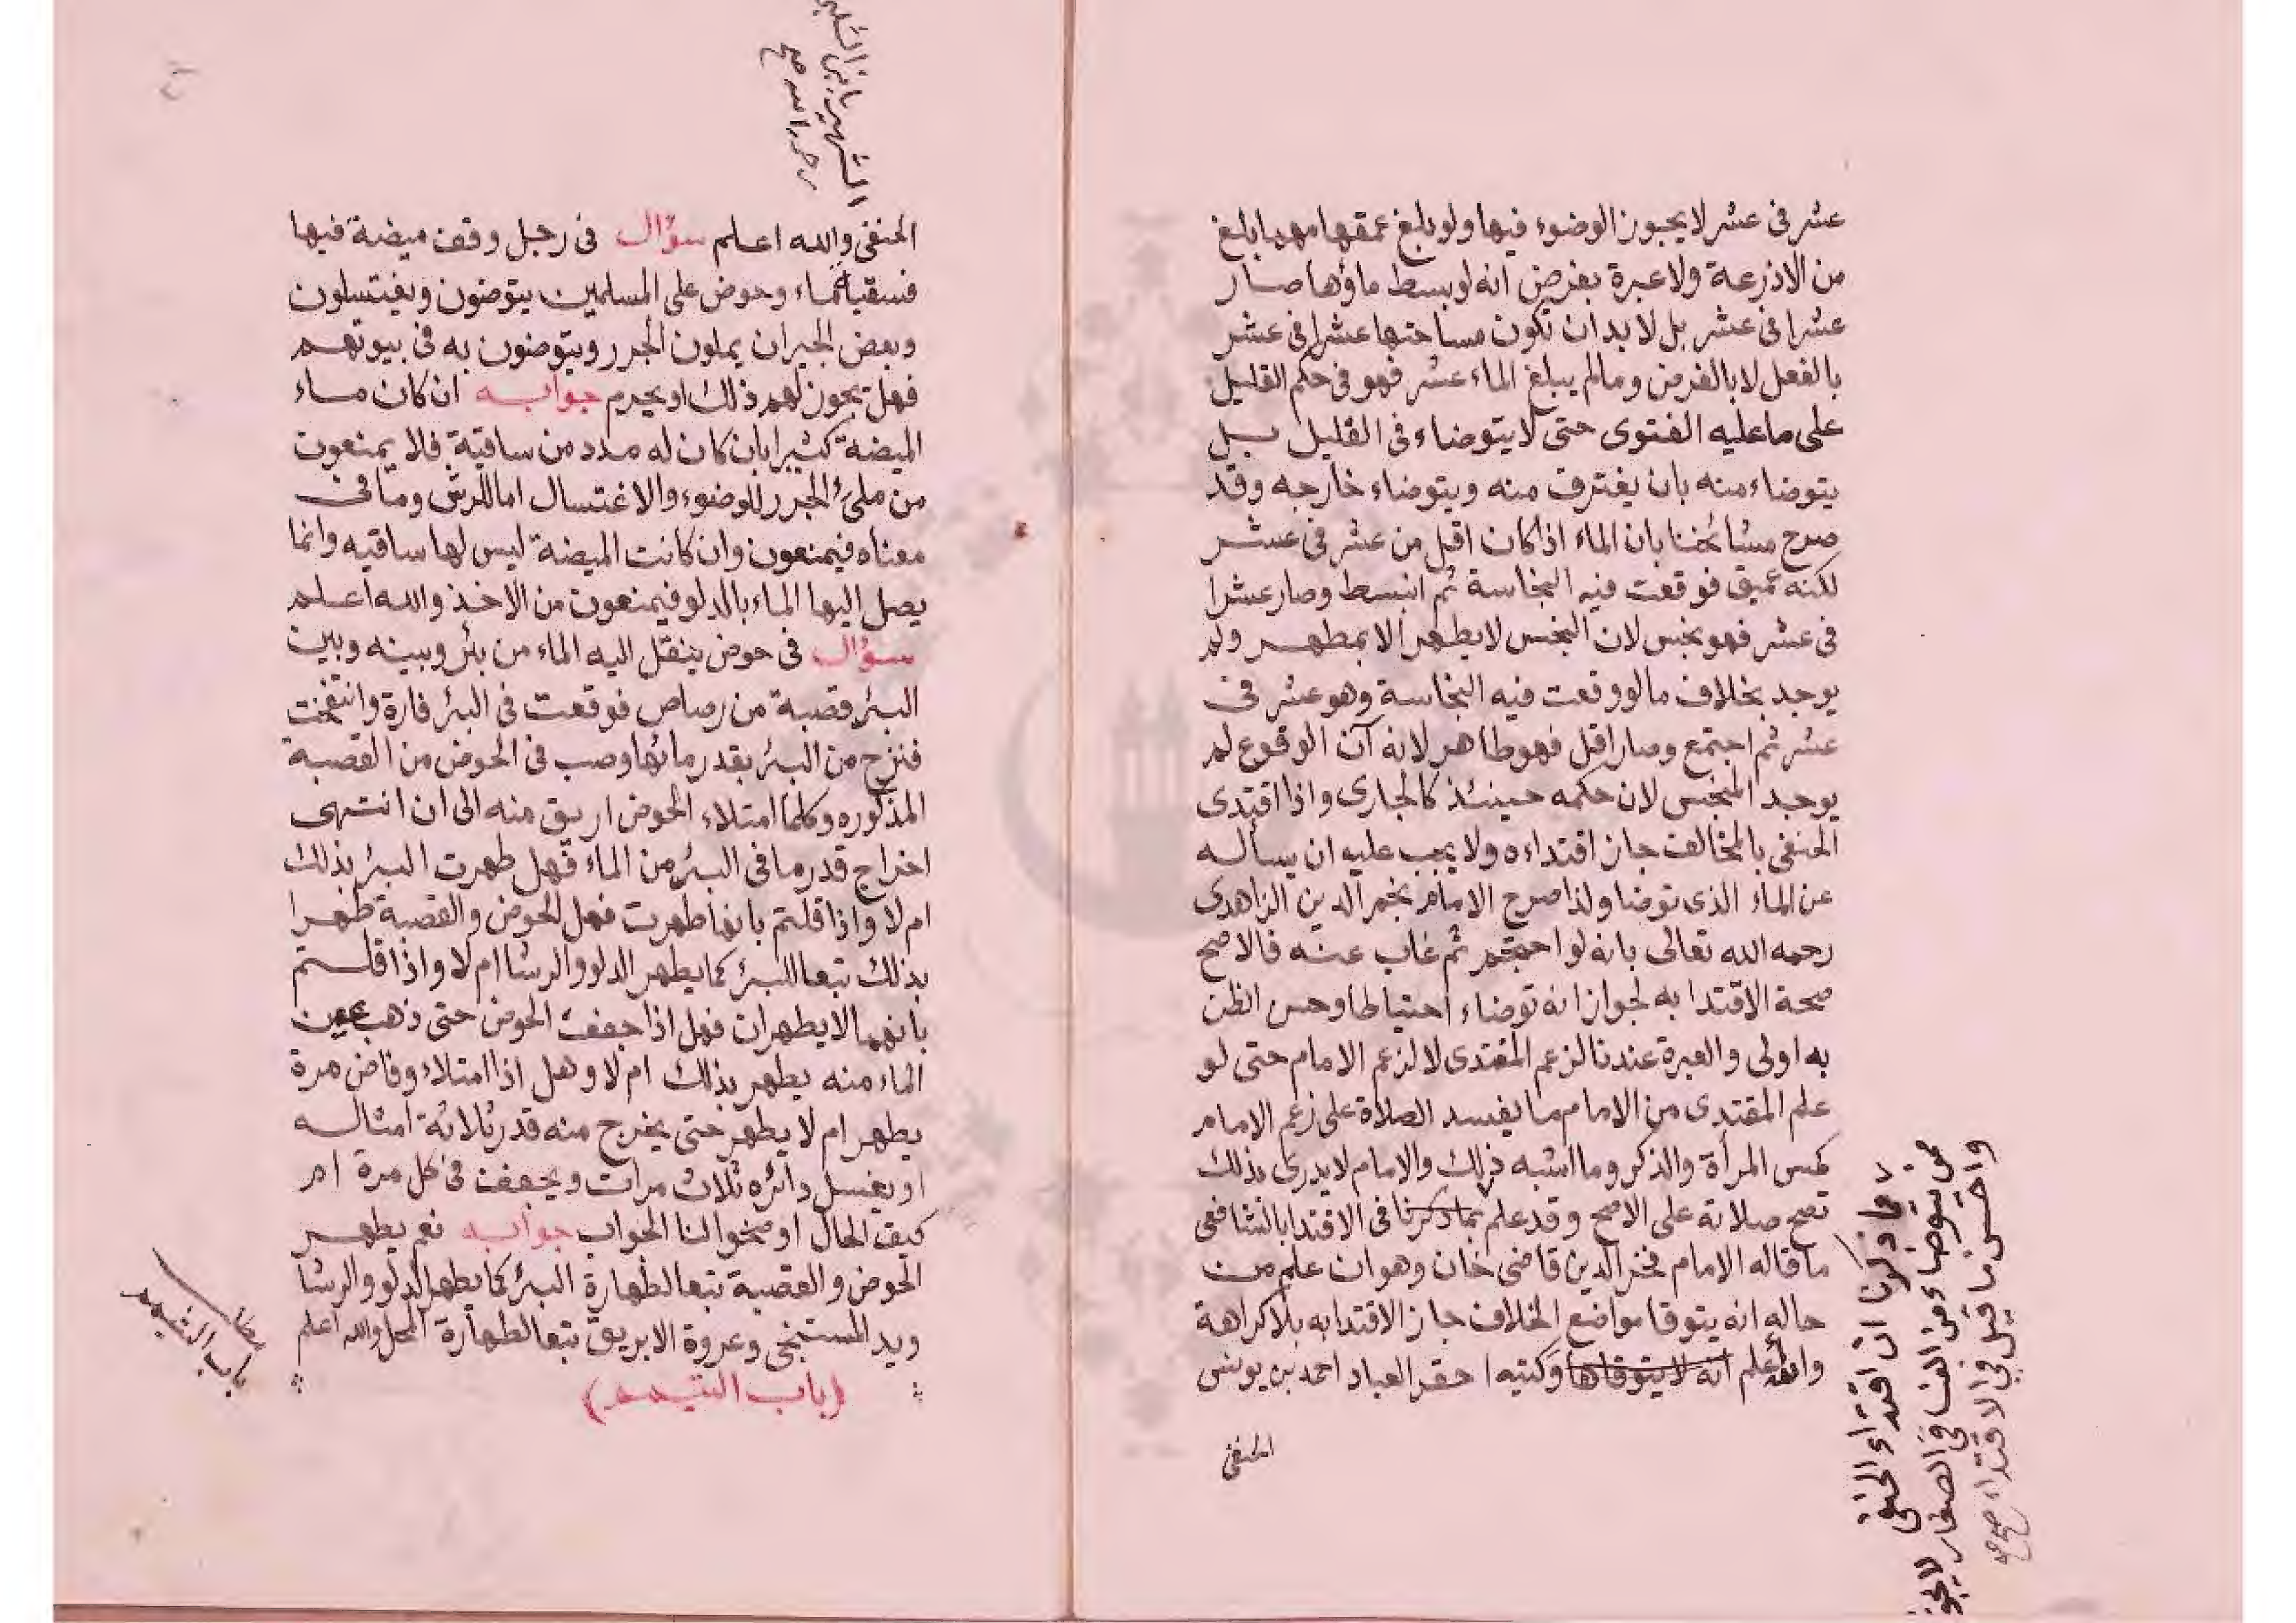 عشر في عشر لا يجوز الوضوء فيها ولو بلغ عمقها مهما بلغ
من الاذرعة ولا عبرة بفرض انه لو بسط ماؤها صار
عشرا في عشر بل لا بد ان تكون مساحتها عشرا في عشر
بالفعل لا بالفرض وما لم يبلغ الماء عشر فهو في حكم القليل
على ما عليه الفتوى حتى لا يتوضاء في القليل بل
يتوضاء منه بان يغترف منه ويتوضاء خارجه وقد
صرح مشائخنا بان الماء اذا كان اقل من عشر في عشر
لكنه عميق فوقعت فيه النجاسة ثم انبسط وصار عشرا
في عشر فهو نجس لان النجس لا يطهر الا بمطهر ولم
يوجد بخلاف ما لو وقعت فيه النجاسة وهو عشر في
عشر ثم اجتمع وصار اقل فهو طاهر لانه آن الوقوع لم
يوجد المنجس لان حكمه حينئذ كالجاري واذا اقتدى
الحنفي بالمخالف جاز اقتداءه ولا يجب عليه ان يسأله
عن الماء الذي توضا ولذا صرح الامام نجم الدين الزاهدي
رحمه الله تعالى بانه لو احتجم ثم غاب عنه فالاصح
صحة الاقتدا به لجواز انه توضاء احتياطا وحس الظن
به اولى والعبرة عندنا لزعم المقتدى لا لزعم الامام حتى لو
علم المقتدى من الامام ما يفسد الصلاة على زعم الامام
كمس المرأة والذكر وما اشبه ذلك والامام لا يدرى بذلك
تصح صلاته على الاصح وقد علم بما ذكرنا في الاقتدا بالشافعي
ما قاله الامام فخر الدين قاضي خان وهو ان علم من
حاله انه يتوقا مواضع الخلاف جاز الاقتدا به بلا كراهة
والله أعلم انه لا يتوقاها وكتبه احقر العباد احمد بن يونس
الحنفي
وما ذكرنا ان اقتداء الحنفي
ممن يتوضاء من الفساقي الصغار لا يجوز
واحسن ما قيل في الاقتداء صح
الشهير بابن الشلبي
رحمه الله صح
الحنفي والله اعلم سؤال في رجل وقف ميضة فيها
فسقية ماء وحوض على المسلمين يتوضون ويغتسلون
وبعض الجيران يملون الجرر ويتوضون به في بيوتهم
فهل يجوز لهم ذلك او يحرم جوابه ان كان ماء
الميضة كثيرا بان كان له مدد من ساقية فلا يمنعون
من ملئ الجرر للوضوء والاغتسال اما للرش وما في
معناه فيمنعون وان كانت الميضة ليس لها ساقيه وانما
يصل اليها الماء بالدلو فيمنعون من الاخذ والله اعلم
سؤال في حوض ينقل اليه الماء من بئر وبينه وبين
البئر قصبة من رصاص فوقعت في البئر فارة وانتفخت
فنزح من البئر بقدر مائها وصب في الحوض من القصبة
المذكوره وكلما امتلاء الحوض اريق منه الى ان انتهى
اخراج قدر ما في البئر من الماء فهل طهرت البئر بذلك
ام لا واذا قلتم بانها طهرت فهل الحوض والقصبة طهرا
بذلك تبعا للبئر كما يطهر الدلو والرشا ام لا واذا قلتم
بانهما لا يطهران فهل اذا جفف الحوض حتى ذهب عين
الماء منه يطهر بذلك ام لا وهل اذا امتلاء وفاض مرة
يطهر ام لا يطهر حتى يخرج منه قدر ثلاثة امثاله
او يغسل دائره ثلاث مرات ويجفف في كل مرة ام
كيف الحال اوضحوا لنا الجواب جوابه نعم يطهر
الحوض والقصبة تبعا لطهارة البئر كما يطهر الدلو والرشا
ويد المستنجي وعروة الابريق تبعا لطهارة المحل والله اعلم
(باب التيمم)
مطلب
باب التيمم